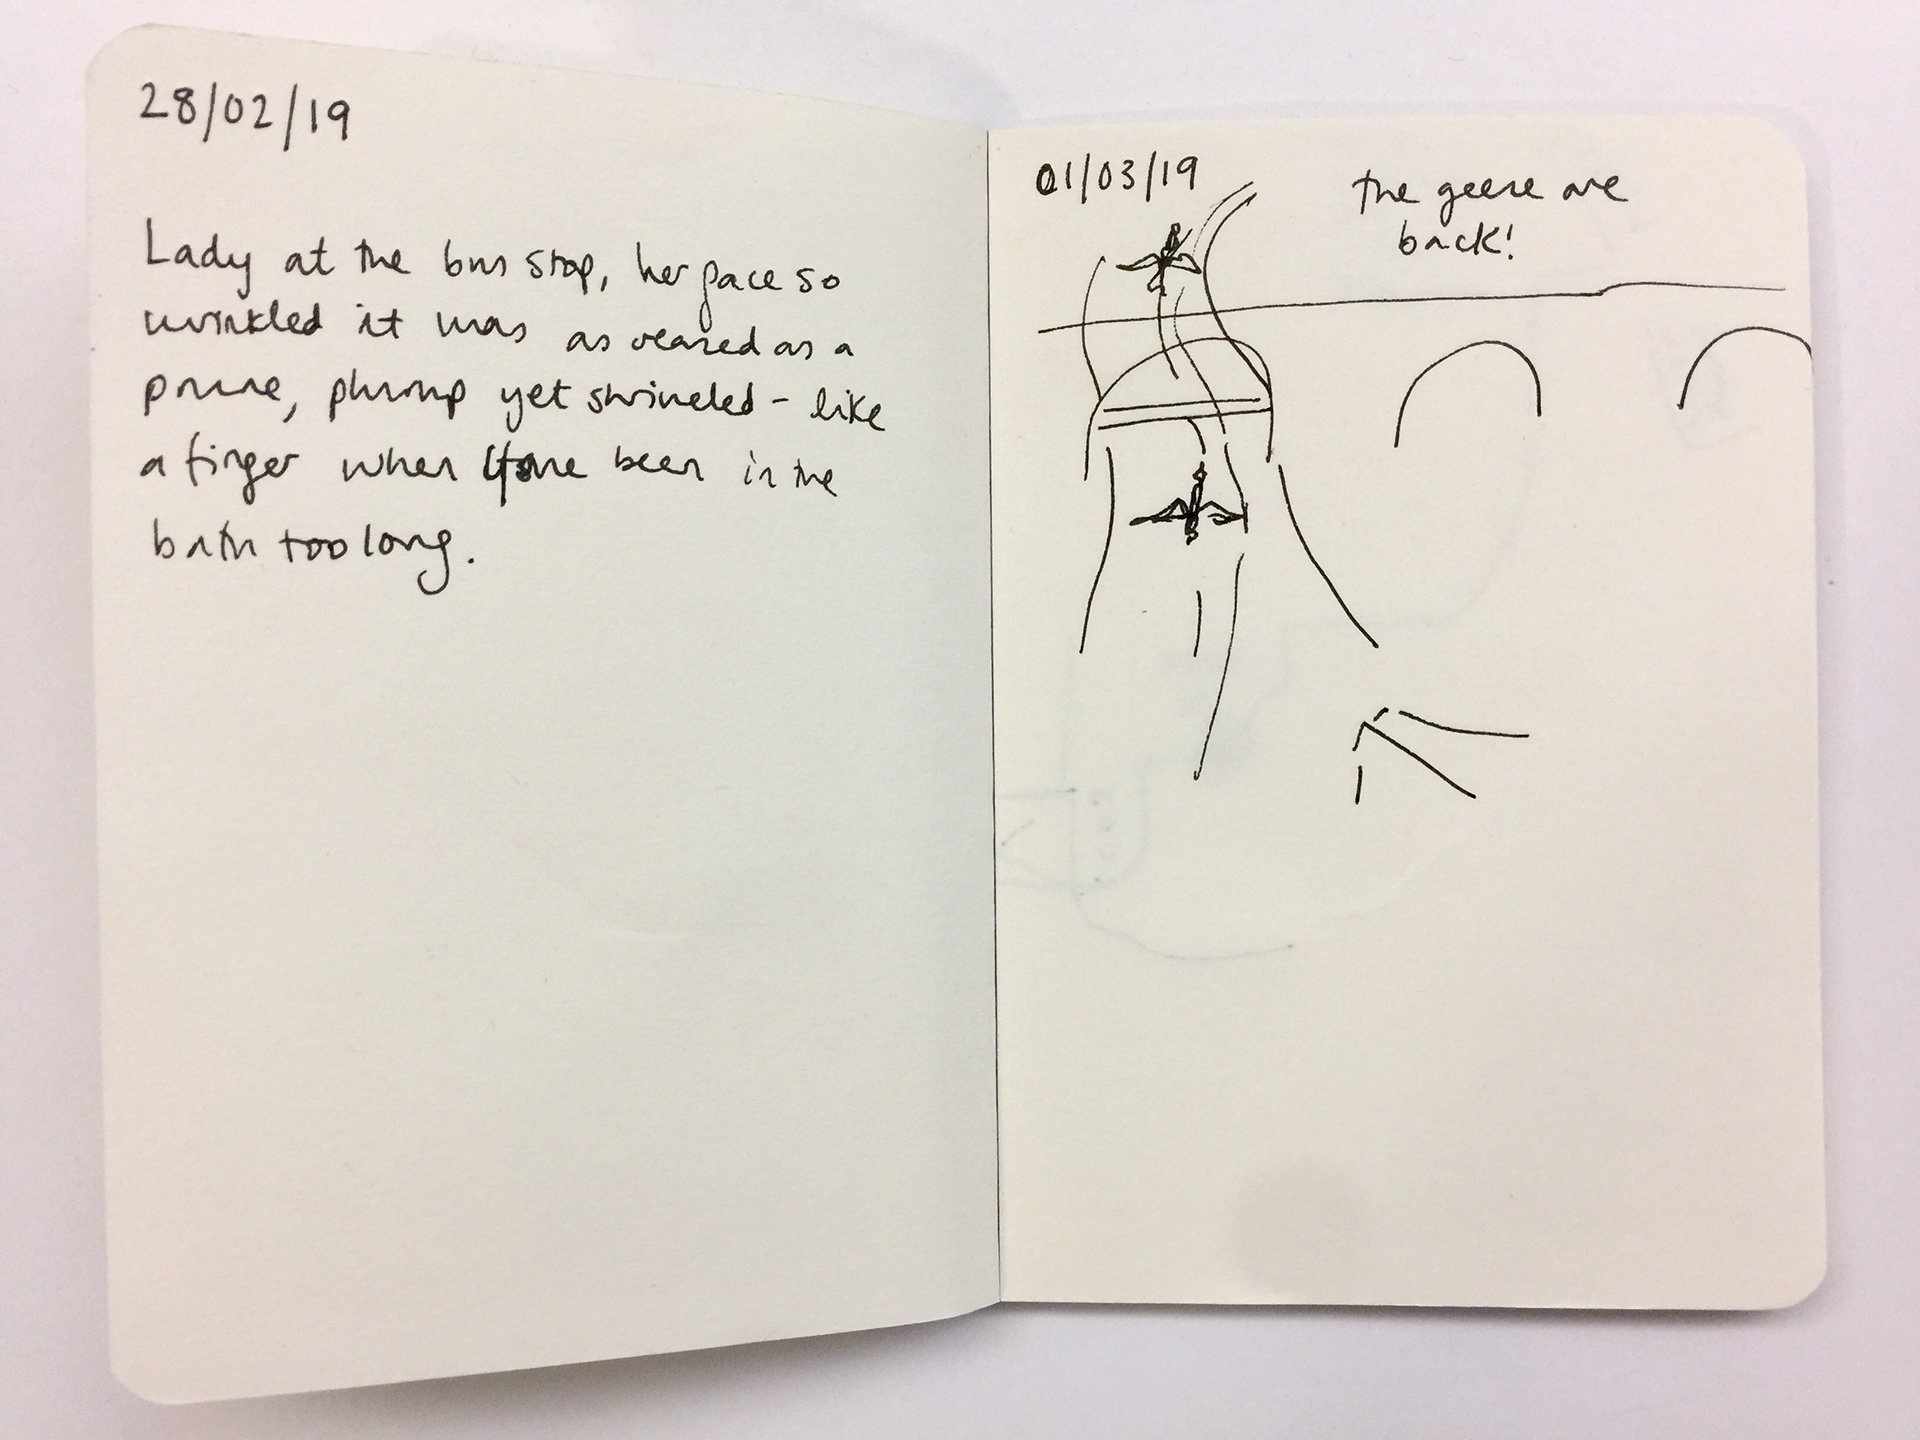 28/02/19
Lady at the bus stop, her face so
wrinkled it was as creased as a
prune, plump yet shriveled - like
a finger when been in the
bath too long.
01/03/19
the geese are
back!